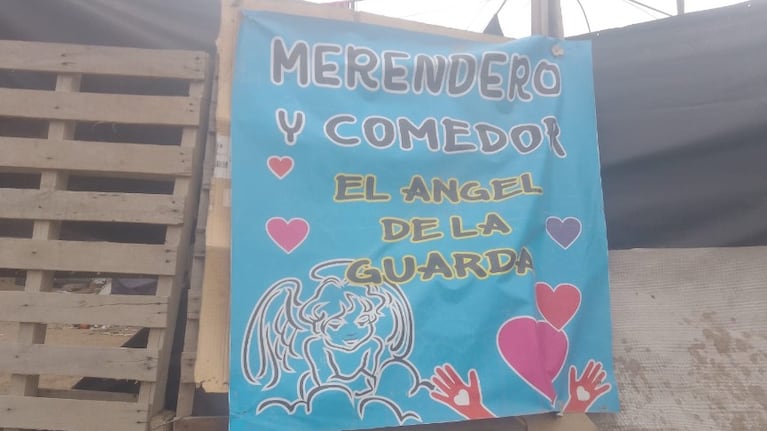 MERENDERO
Y COMEDOR
EL ANGEL
DE LA
GUARDA